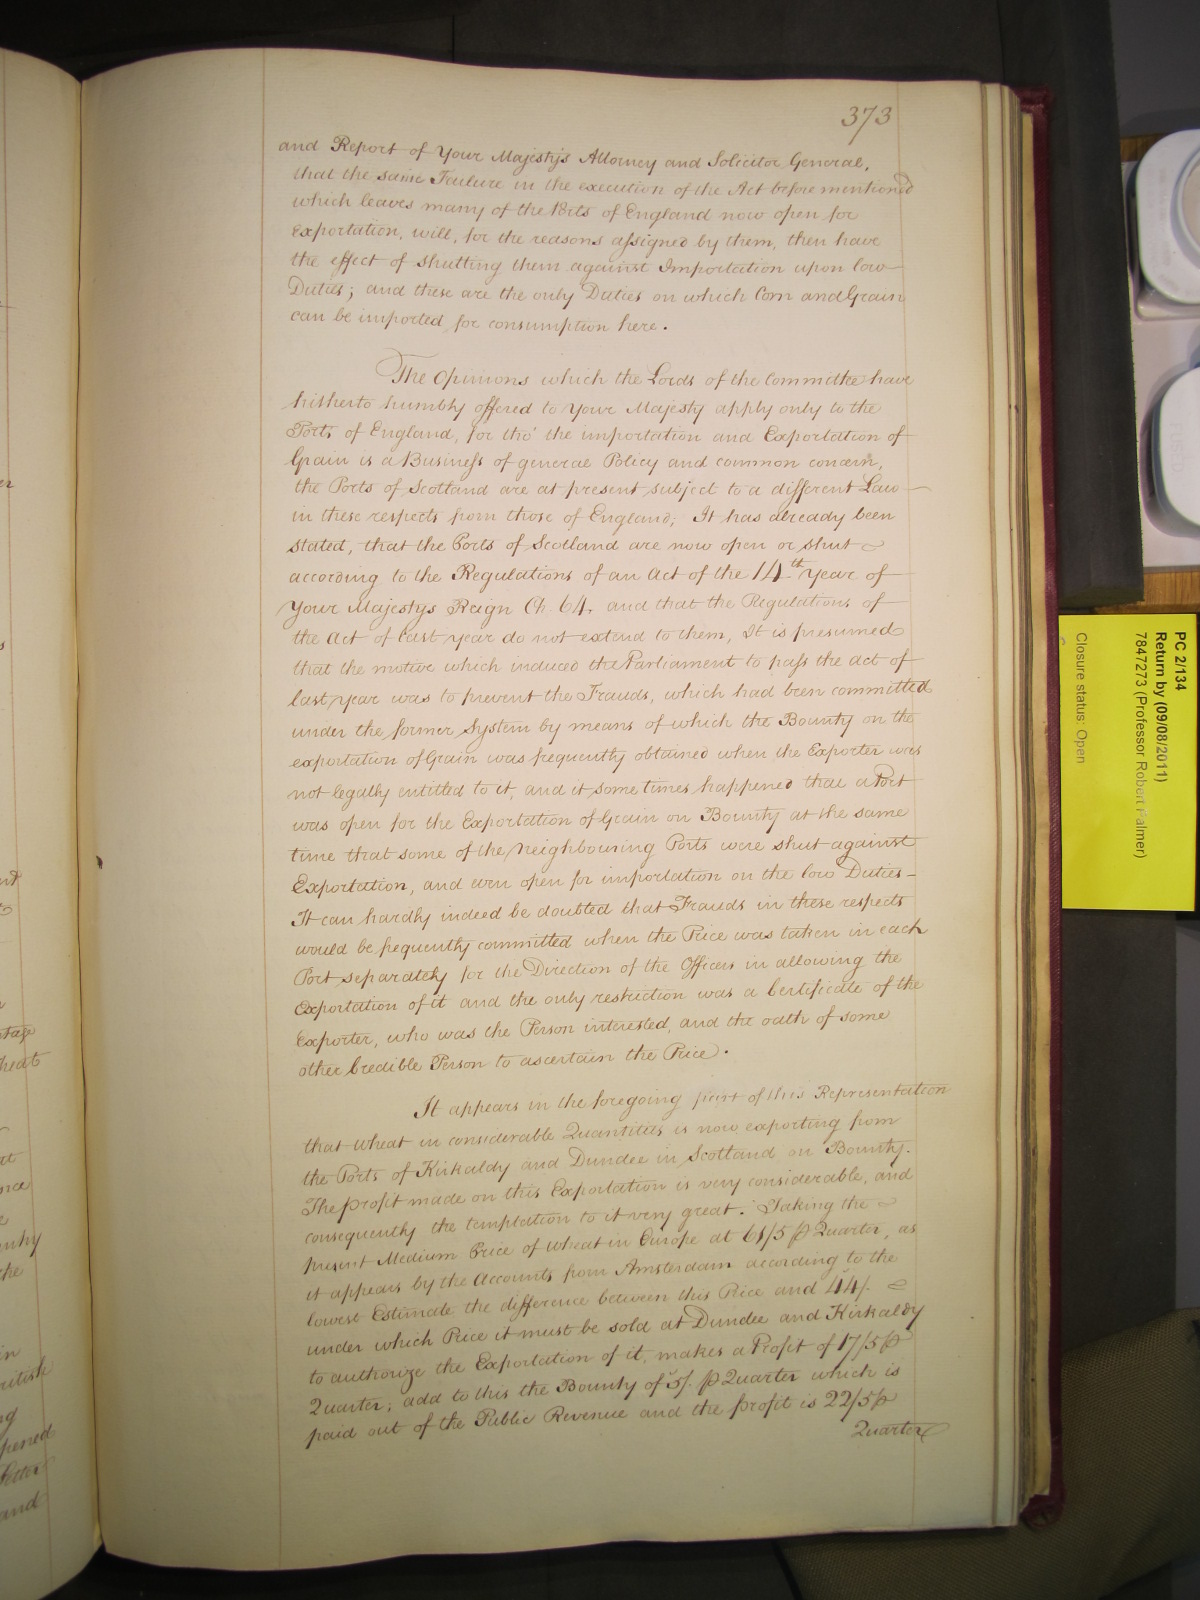 373
and Report of Your Majesty's Attorney and Solicitor General,
that the same Failure in the execution of the Act before mentioned
which leaves many of the Ports of England now open for
Exportation, will, for the reasons assigned by them, then have
the effect of shutting them against Importation upon low
Duties; and these are the only Duties on which Corn and Grain
can be imported for consumption here.
The Opinions which the Lords of the Committee have
hitherto humbly offered to Your Majesty apply only to the
Ports of England, for tho' the importation and Exportation of
Grain is a Business of general Policy and common concern,
the Ports of Scotland are at present subject to a different Law
in these respects from those of England; It has already been
stated, that the Ports of Scotland are now open or shut
according to the Regulations of an Act of the 14th Year of
Your Majestys Reign Ch. 64, and that the Regulations of
the Act of last year do not extend to them, It is presumed
that the motive which induced the Parliament to pass the Act of
last year was to prevent the Frauds, which had been committed
under the former System by means of which the Bounty on the
exportation of Grain was frequently obtained when the Exporter was
not legally entitled to it, and it some times happened that a Port
was open for the Exportation of Grain on Bounty at the same
time that some of the Neighbouring Ports were shut against
Exportation, and even open for importation on the low Duties -
It can hardly indeed be doubted that Frauds in these respects
would be frequently committed when the Price was taken in each
Port separately for the Direction of the Officers in allowing the
Exportation of it and the only restriction was a Certificate of the
Exporter, who was the Person interested, and the oath of some
other Credible Person to ascertain the Price.
It appears in the foregoing part of this Representation
that Wheat in considerable Quantities is now exporting from
the Ports of Kirkaldy and Dundee in Scotland on Bounty.
The profit made on this Exportation is very considerable, and
consequently the temptation to it very great. Taking the
present Medium Price of wheat in Europe at 61/5 ⅌ Quarter, as
it appears by the Accounts from Amsterdam according to the
lowest Estimate the difference between this Price and 44/.
under which Price it must be sold at Dundee and Kirkaldy
to authorize the Exportation of it, makes a Profit of 17/5 ⅌
Quarter; add to this the Bounty of 5/. ⅌ Quarter which is
paid out of the Public Revenue and the profit is 22/5 ⅌
Quarter
PC 2/134
Return by (09/08/2011)
7847273 (Professor Robert Palmer)
Closure status: Open